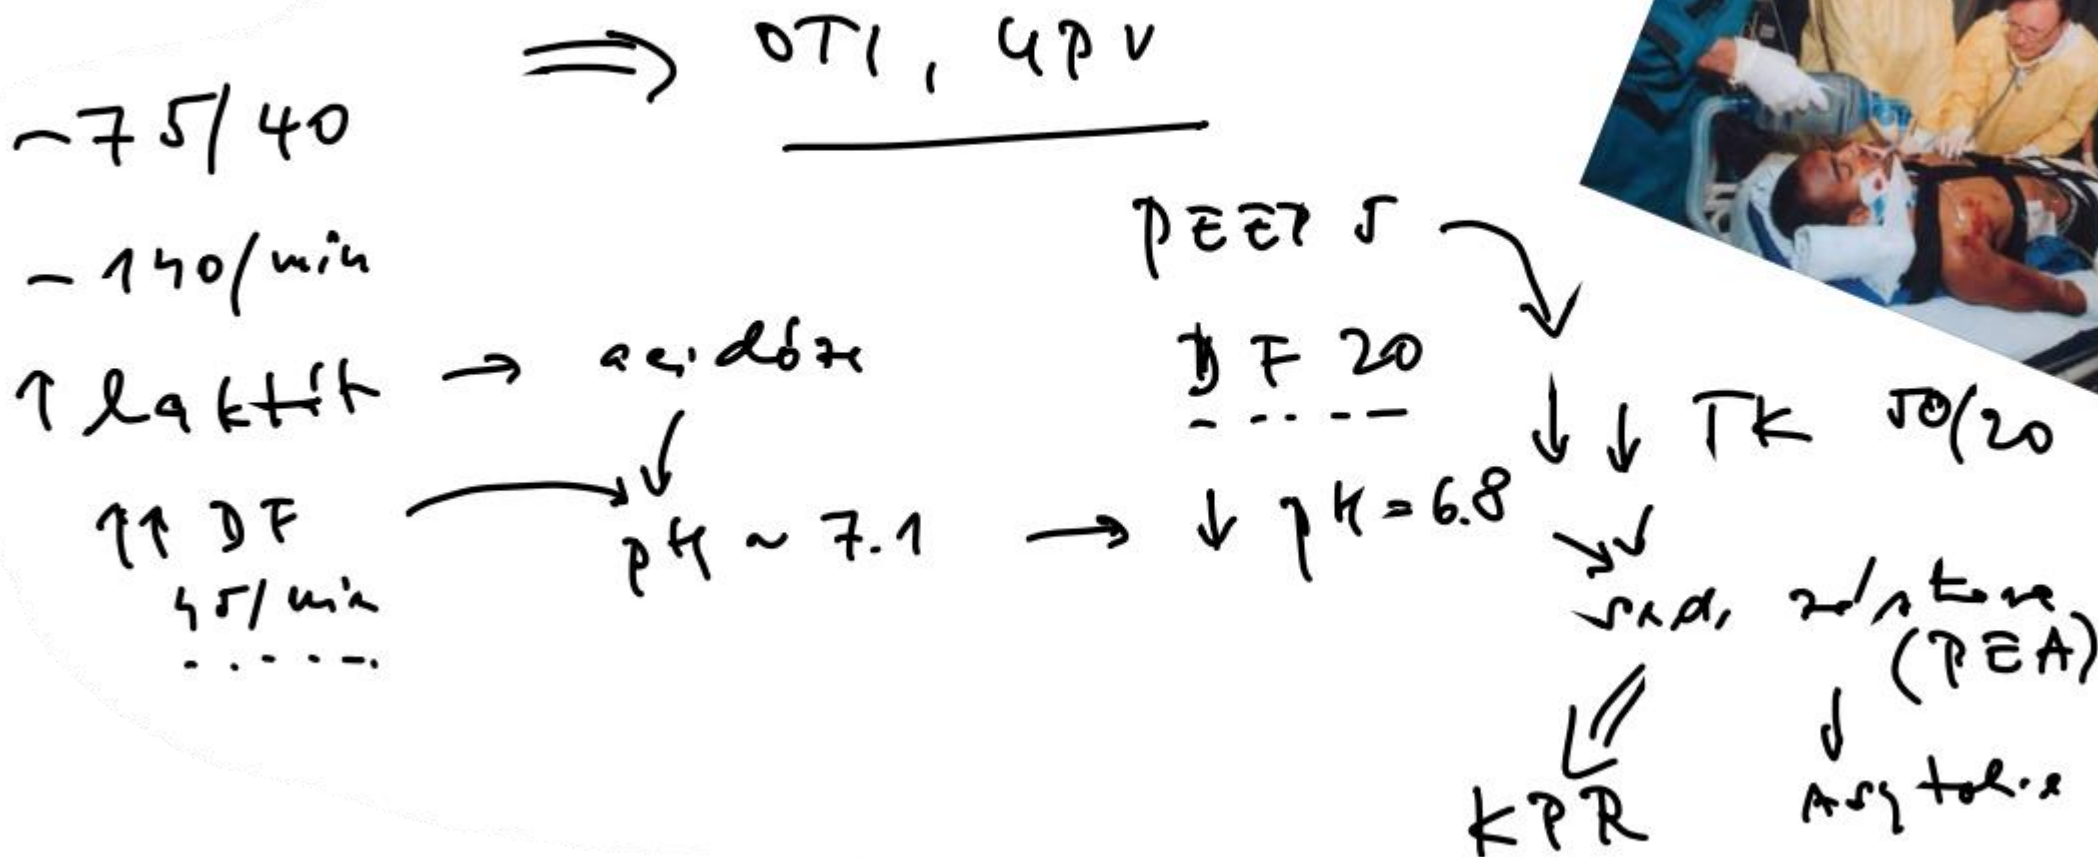 ⇒ OTI, UPV
~75/40
- 140/min
PEEP 5
↑ laktát → acidóza
DF 20
↓↓ TK 50/20
↑↑ DF
45/min
pH ~ 7.1 → ↓ pH = 6.8
srd. zástava
(PEA)
↓
KPR
Asystolie